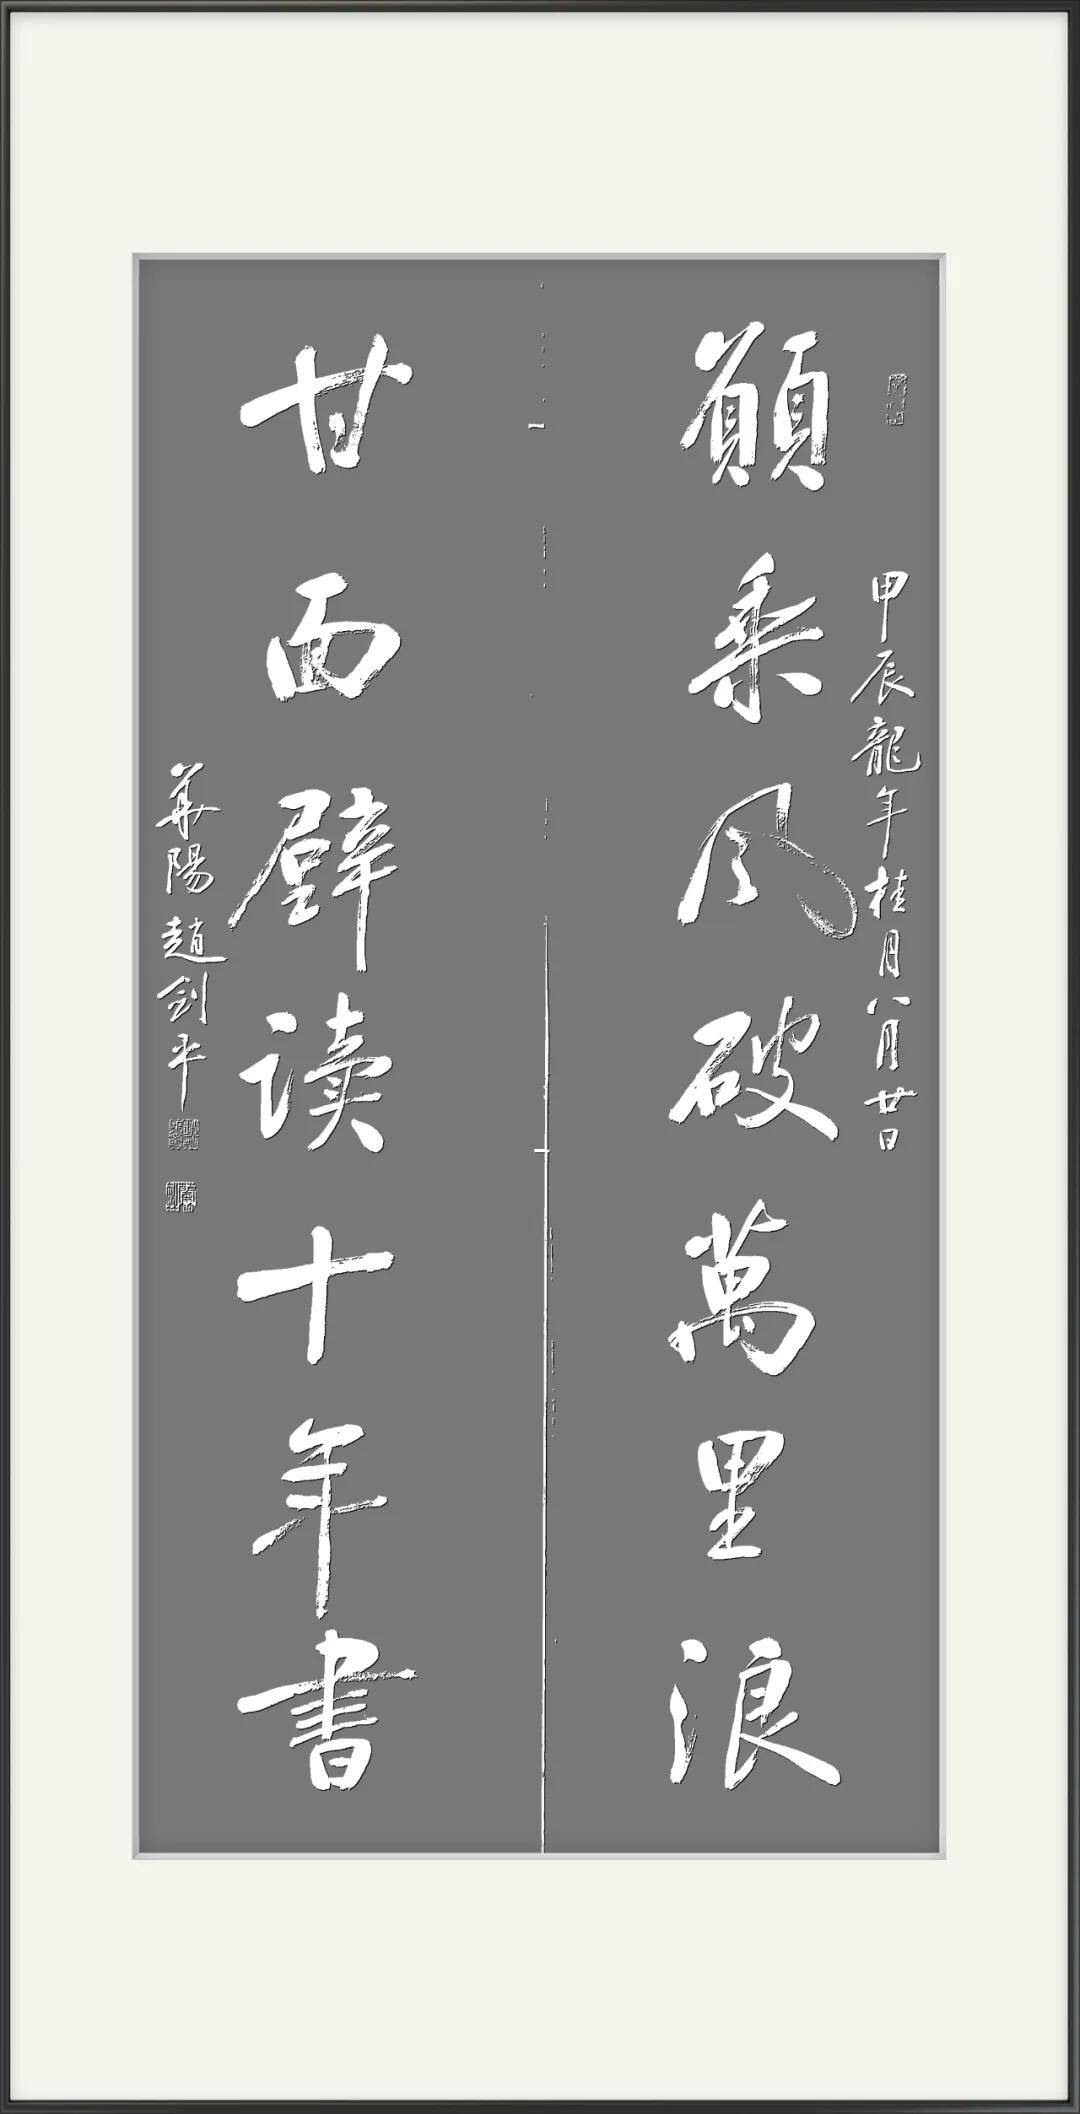 甲辰龍年桂月八月廿日
願乘风破萬里浪
甘面壁读十年書
華陽趙剑平